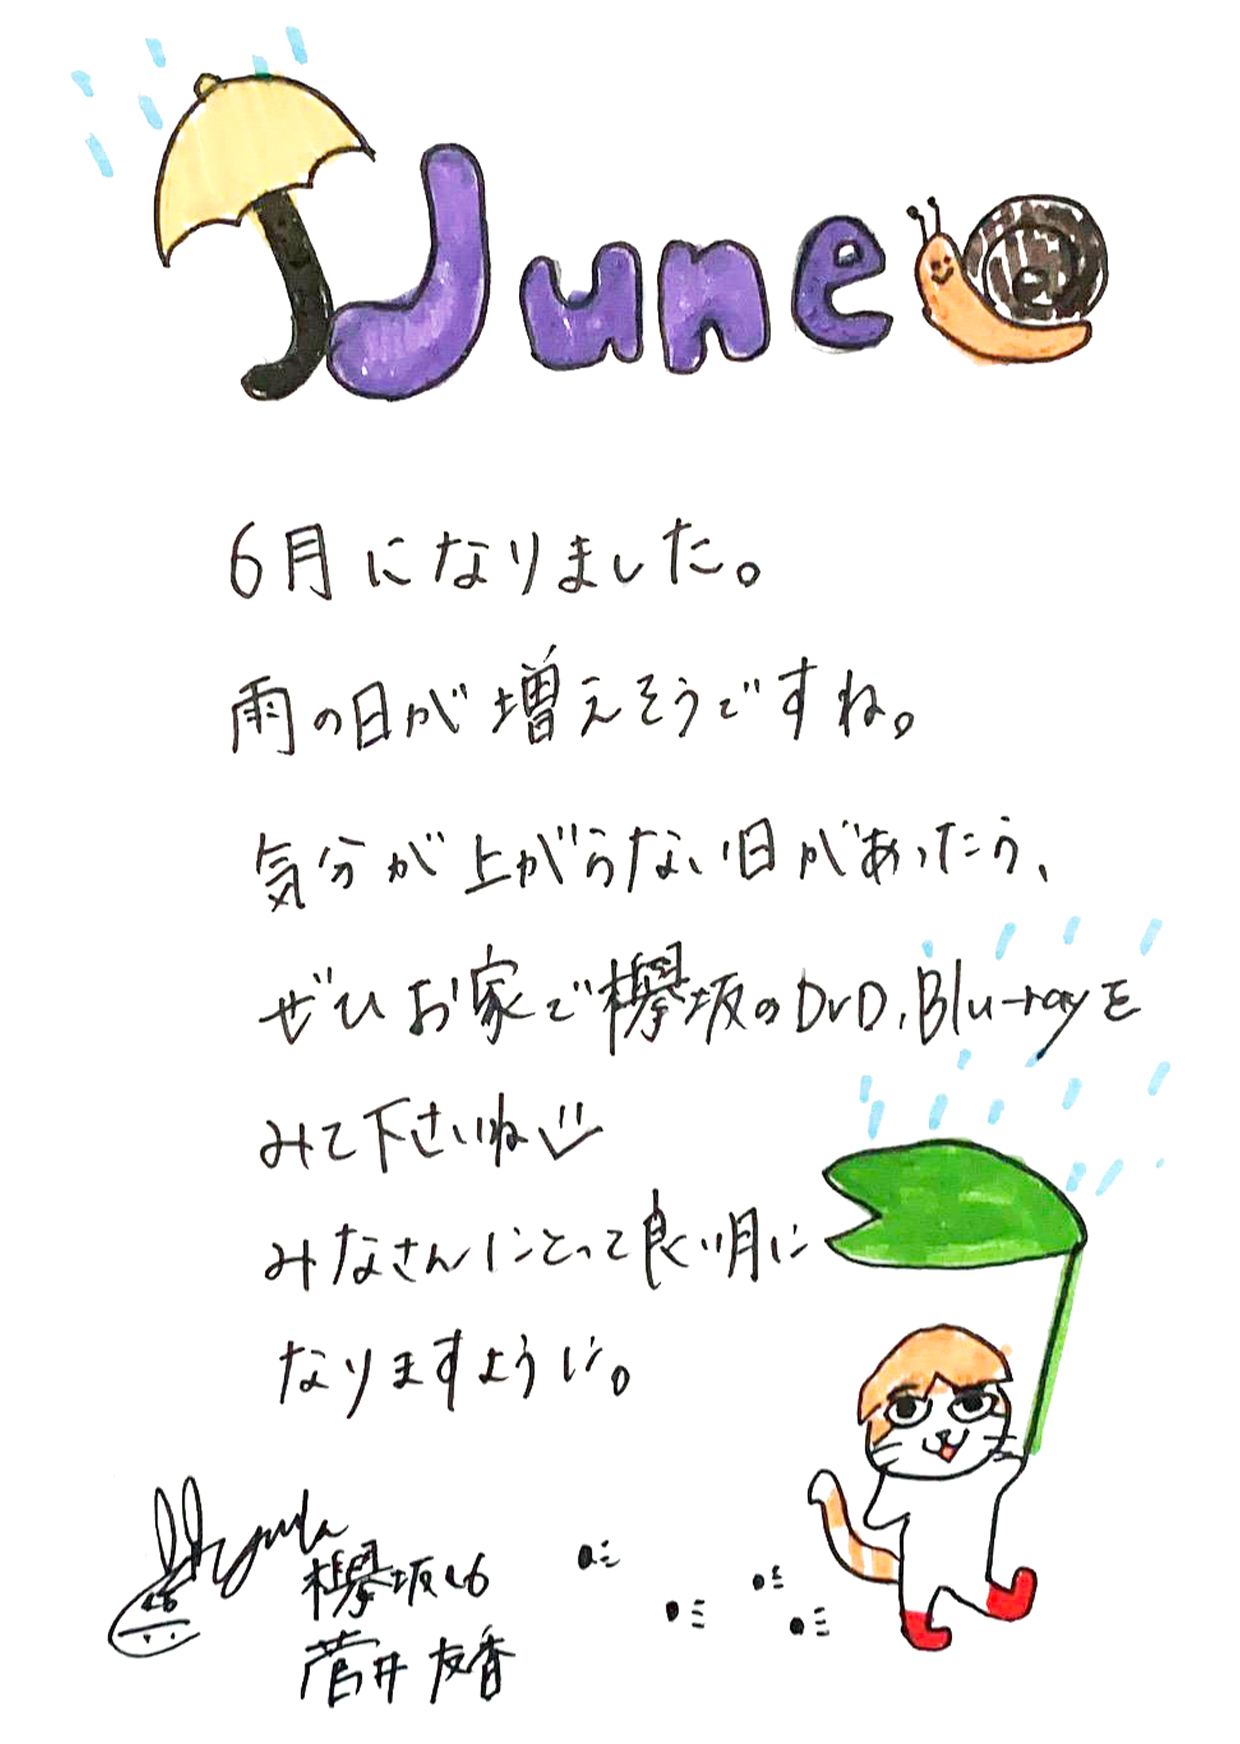 June
6月になりました。
雨の日が増えそうですね。
気分が上がらない日があったら、
ぜひお家で欅坂のDVD,Blu-rayを
みて下さいね
みなさんにとって良い月に
なりますように。
欅坂46
菅井友香